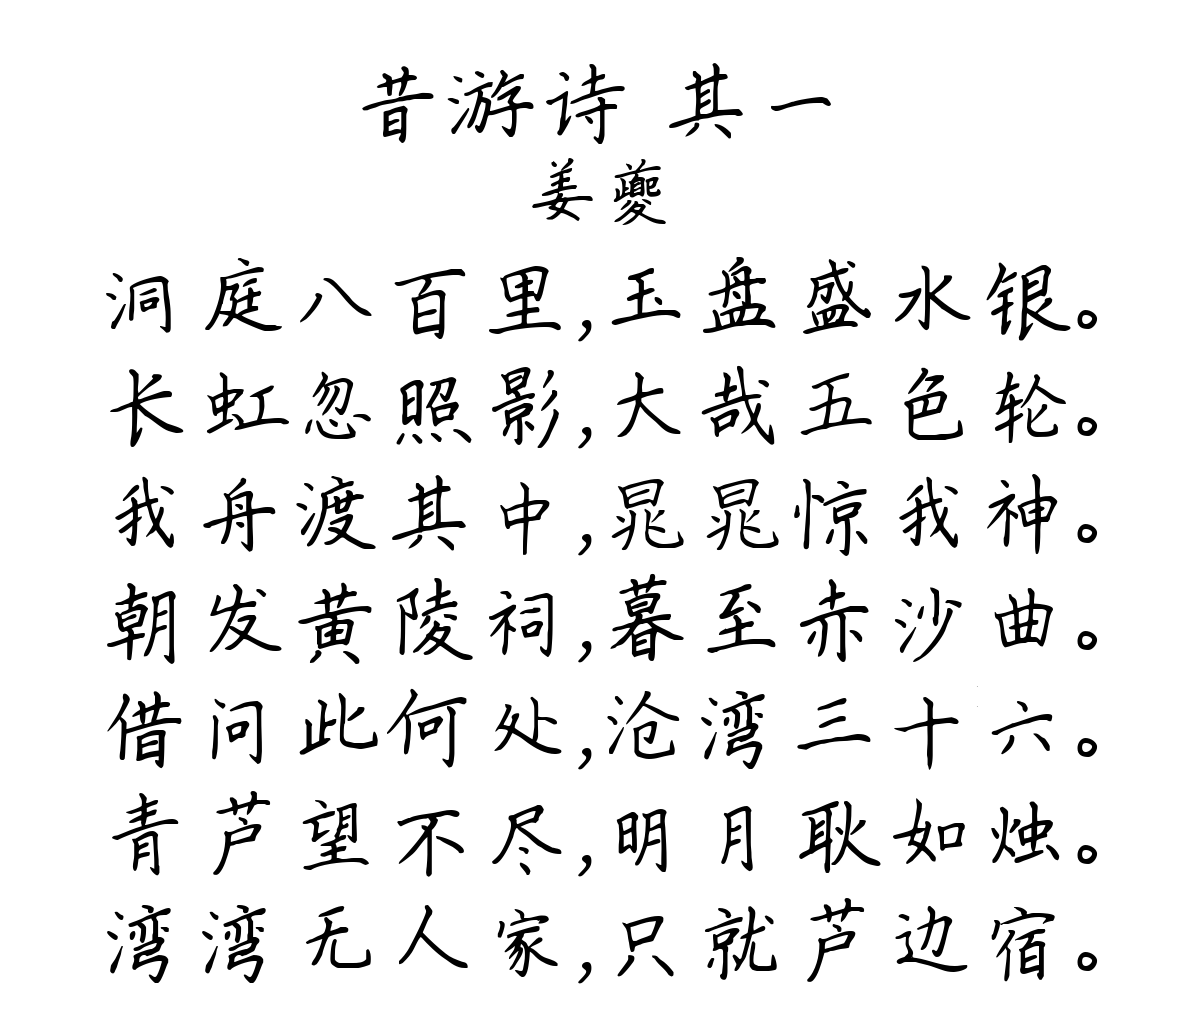 昔游诗 其一
姜夔
洞庭八百里,玉盘盛水银。
长虹忽照影,大哉五色轮。
我舟渡其中,晃晃惊我神。
朝发黄陵祠,暮至赤沙曲。
借问此何处,沧湾三十六。
青芦望不尽,明月耿如烛。
湾湾无人家,只就芦边宿。